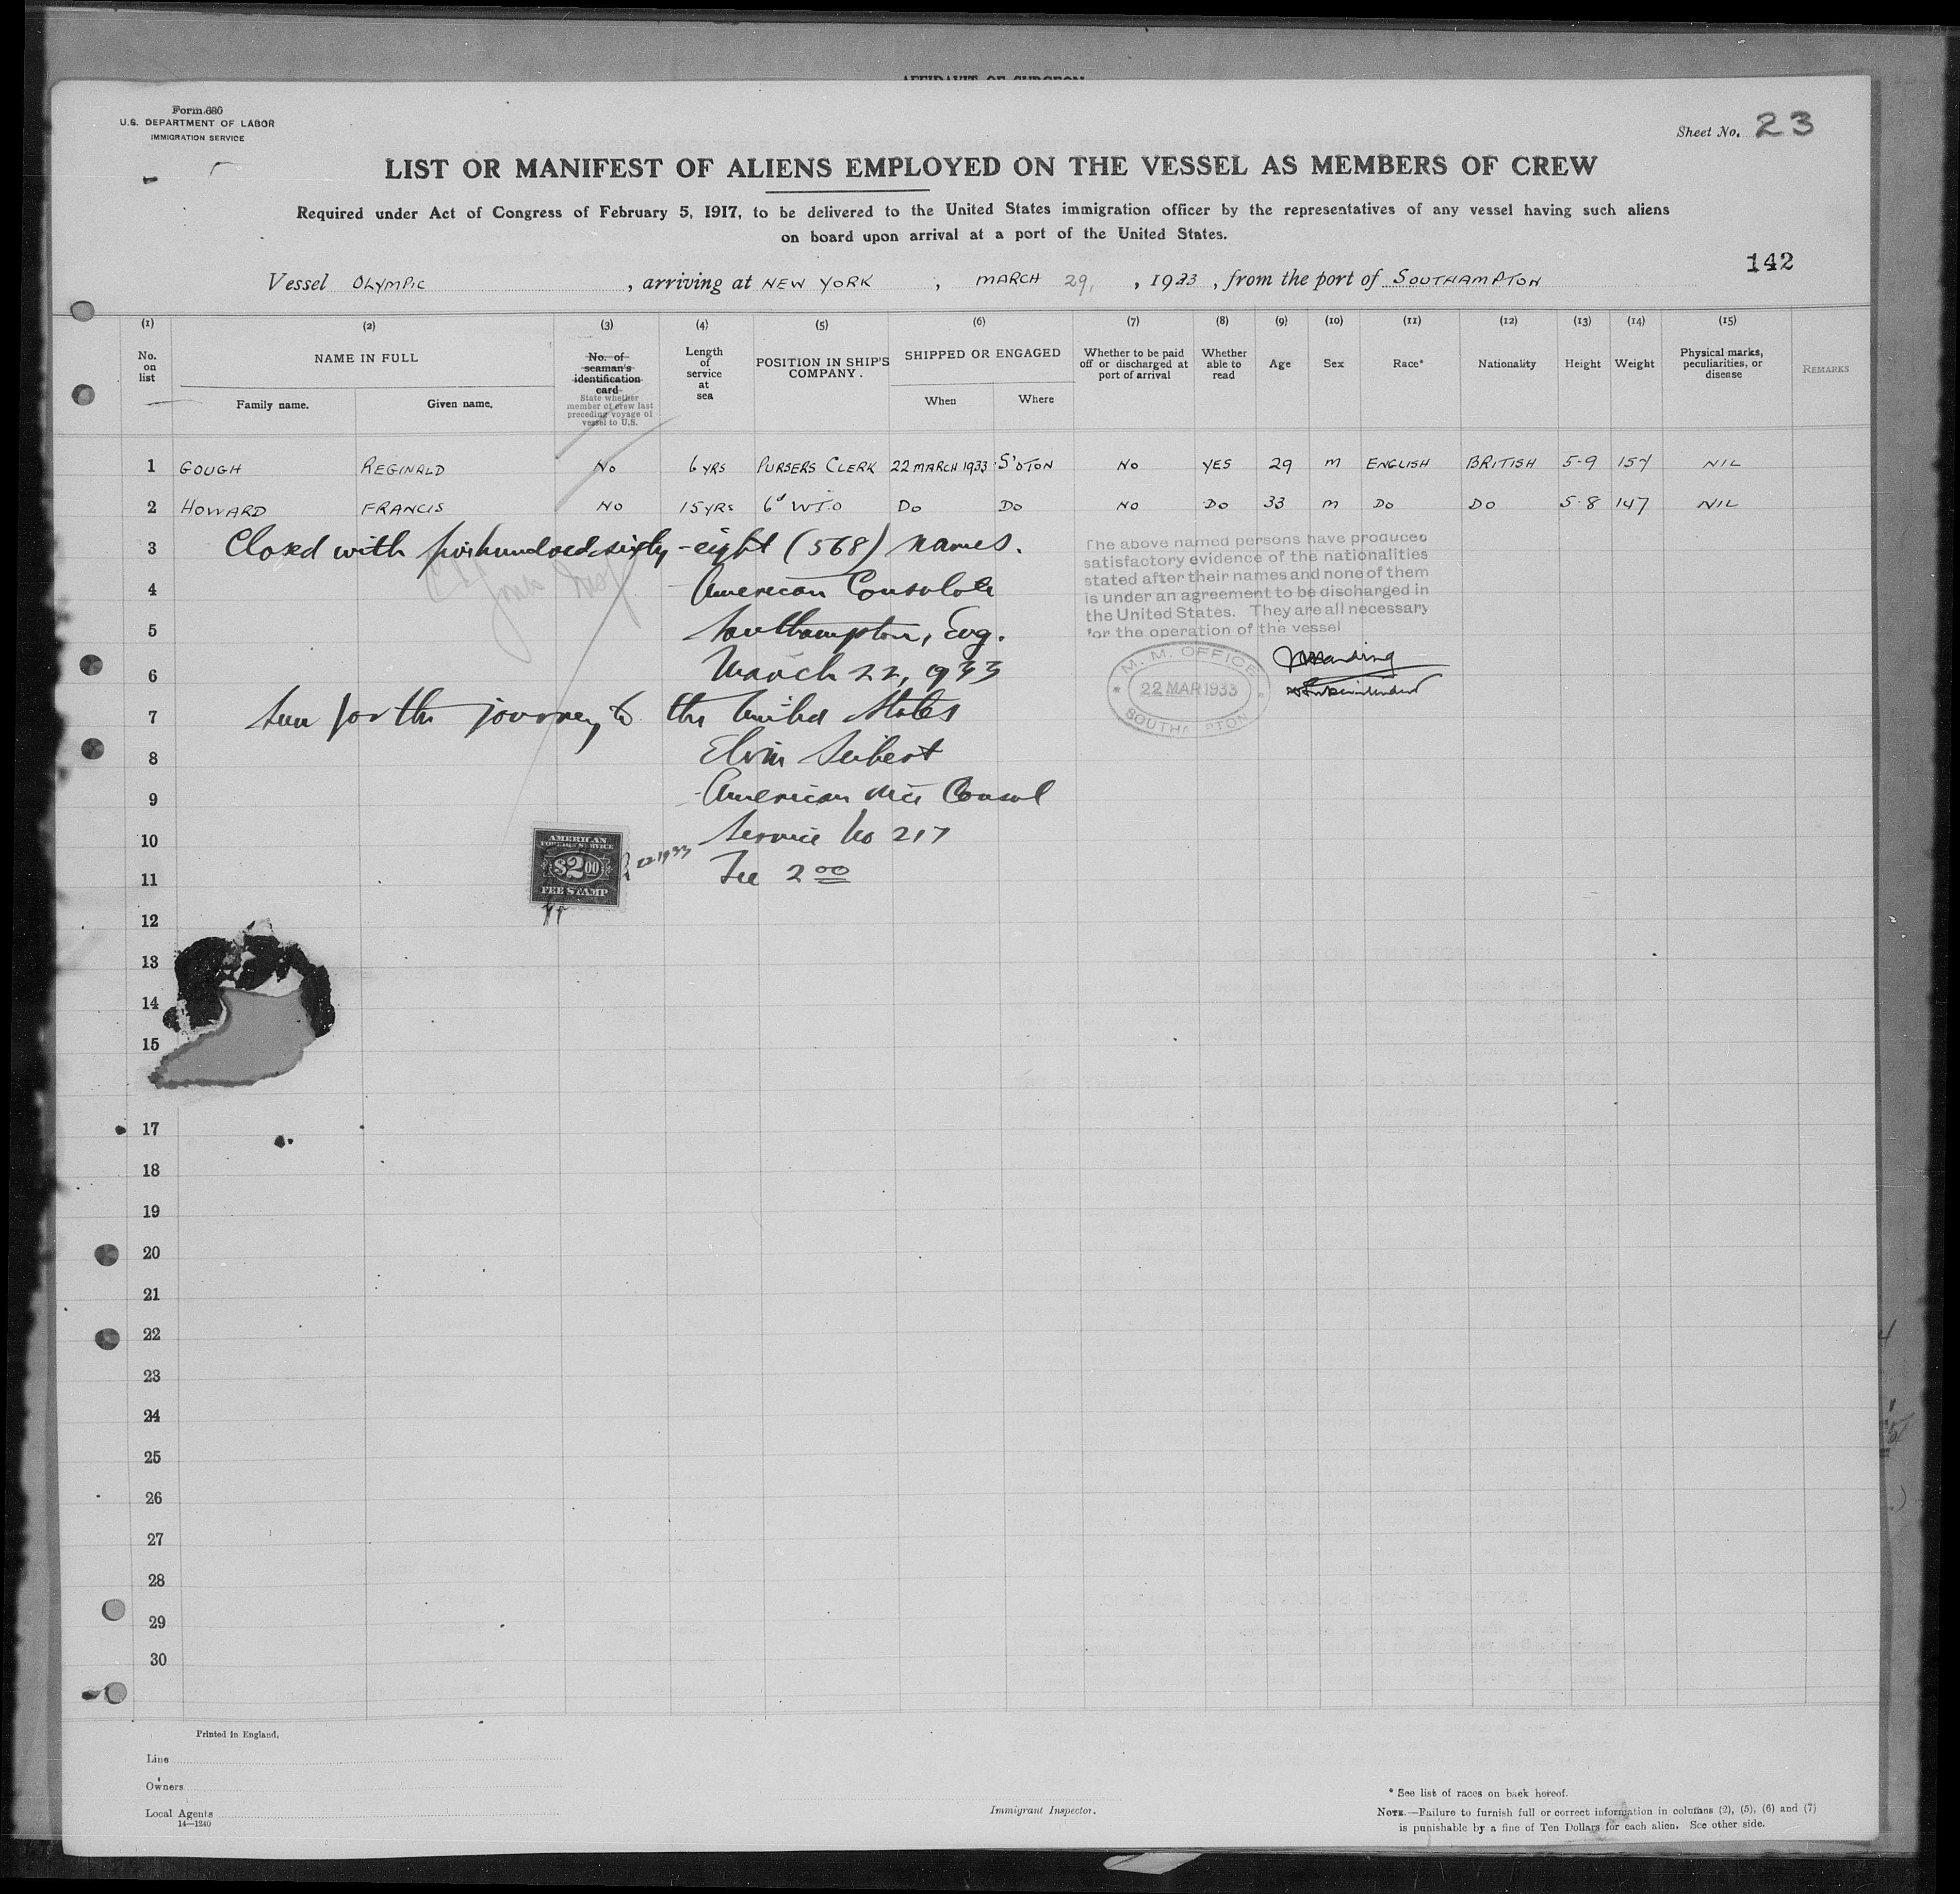 Form 680
U.S. DEPARTMENT OF LABOR
IMMIGRATION SERVICE
Sheet No. 23
LIST OR MANIFEST OF ALIENS EMPLOYED ON THE VESSEL AS MEMBERS OF CREW
Required under Act of Congress of February 5, 1917, to be delivered to the United States immigration officer by the representatives of any vessel having such aliens
on board upon arrival at a port of the United States.
142
Vessel OLYMPIC, arriving at NEW YORK, MARCH 29, 1933, from the port of SOUTHAMPTON
(1) (2) (3) (4) (5) (6) (7) (8) (9) (10) (11) (12) (13) (14) (15)
No. on list
NAME IN FULL
Family name. Given name.
No. of seaman's identification card
State whether member of crew last preceding voyage of vessel to U.S.
Length of service at sea
POSITION IN SHIP'S COMPANY.
SHIPPED OR ENGAGED
When Where
Whether to be paid off or discharged at port of arrival
Whether able to read
Age
Sex
Race*
Nationality
Height
Weight
Physical marks, peculiarities, or disease
REMARKS
1 GOUGH REGINALD No 6 YRS PURSERS CLERK 22 MARCH 1933 S'OTON No YES 29 M ENGLISH BRITISH 5-9 154 NIL
2 HOWARD FRANCIS No 15 YRS Do Do No Do 33 M Do Do 5-8 147 NIL
3 Closed with sixty-eight (568) names.
4 American Consulate
5 Southampton, Eng.
6 March 22, 1933
7 Seen for the journey to the United States
8 Elvin Seibert
9 American Vice Consul
10 Service No 217
11 Fee 2 00
The above named persons have produced
satisfactory evidence of the nationalities
stated after their names and none of them
is under an agreement to be discharged in
the United States. They are all necessary
for the operation of the vessel
M. M. OFFICE
22 MAR 1933
SOUTHAMPTON
AMERICAN
FOREIGN SERVICE
$2.00
FEE STAMP
22 1933
12
13
14
15
17
18
19
20
21
22
23
24
25
26
27
28
29
30
Printed in England.
Line
Owners
Local Agents
14—1240
Immigrant Inspector.
* See list of races on back hereof.
NOTE.—Failure to furnish full or correct information in columns (2), (5), (6) and (7)
is punishable by a fine of Ten Dollars for each alien. See other side.